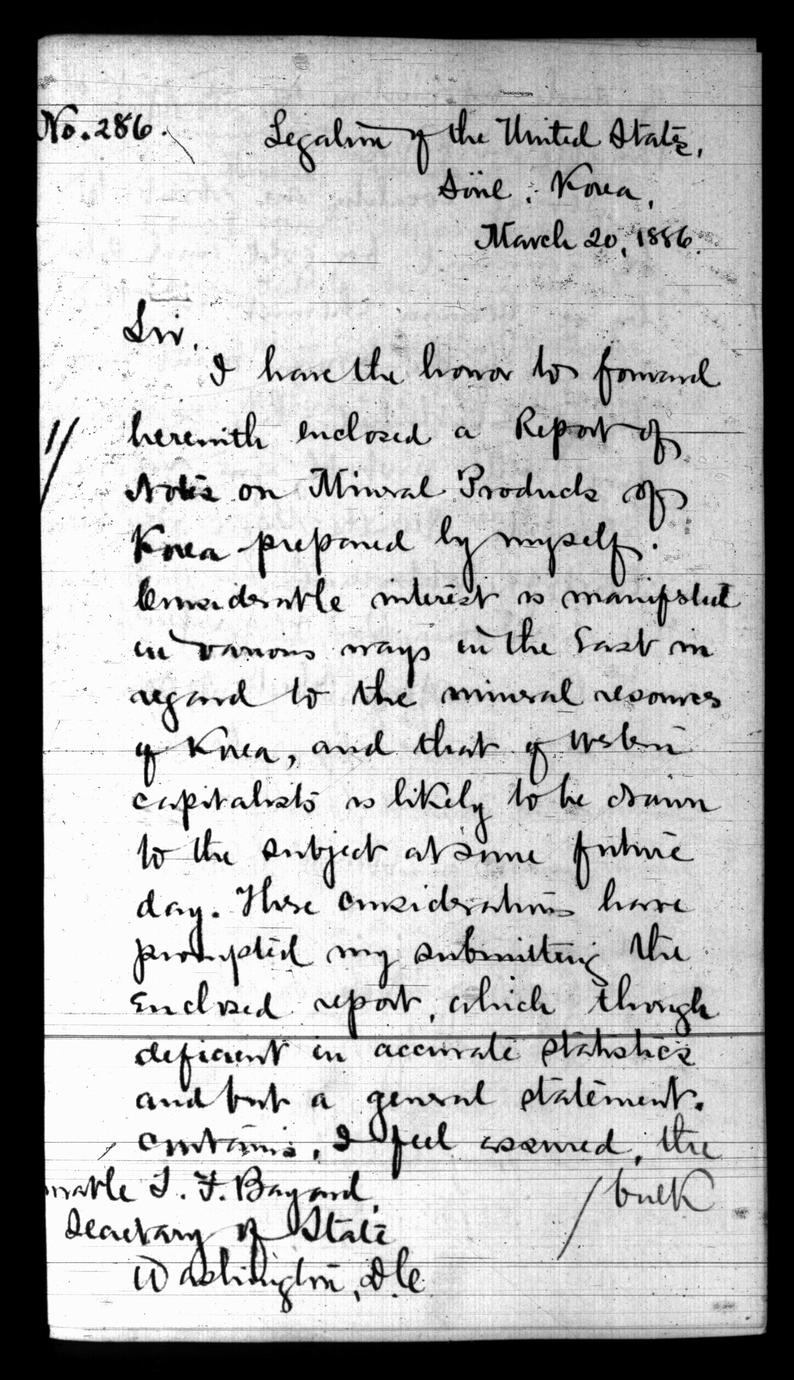 No. 286.
Legation of the United States,
Söul, Korea,
March 20, 1886.
Sir,
I have the honor to forward
1/ herewith enclosed a Report of
Notes on Mineral Products of
Korea prepared by myself.
Considerable interest is manifested
in various ways in the East in
regard to the mineral resources
of Korea, and that of Western
capitalists is likely to be drawn
to the subject at some future
day. These considerations have
prompted my submitting the
enclosed report, which though
deficient in accurate statistics
and but a general statement.
contains, I feel assured, the
/bulk
orable T. F. Bayard,
Secretary of State
Washington, D.C.